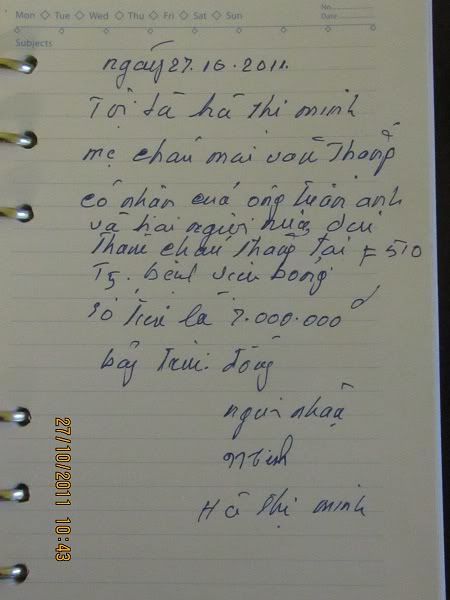 Mon ◇ Tue ◇ Wed ◇ Thu ◇ Fri ◇ Sat ◇ Sun
No.
Date
Subjects
ngày 27.10.2011
Tôi là hà thị minh
mẹ cháu mai văn Thắng
có nhận của ông tuấn anh
và hai người nữa đến
Thăm cháu Thắng tại F 510
T5. bệnh viện bỏng
số tiền là 7.000.000 đ
bảy triệu đồng
người nhận
minh
Hà thị minh
27/10/2011 10:43